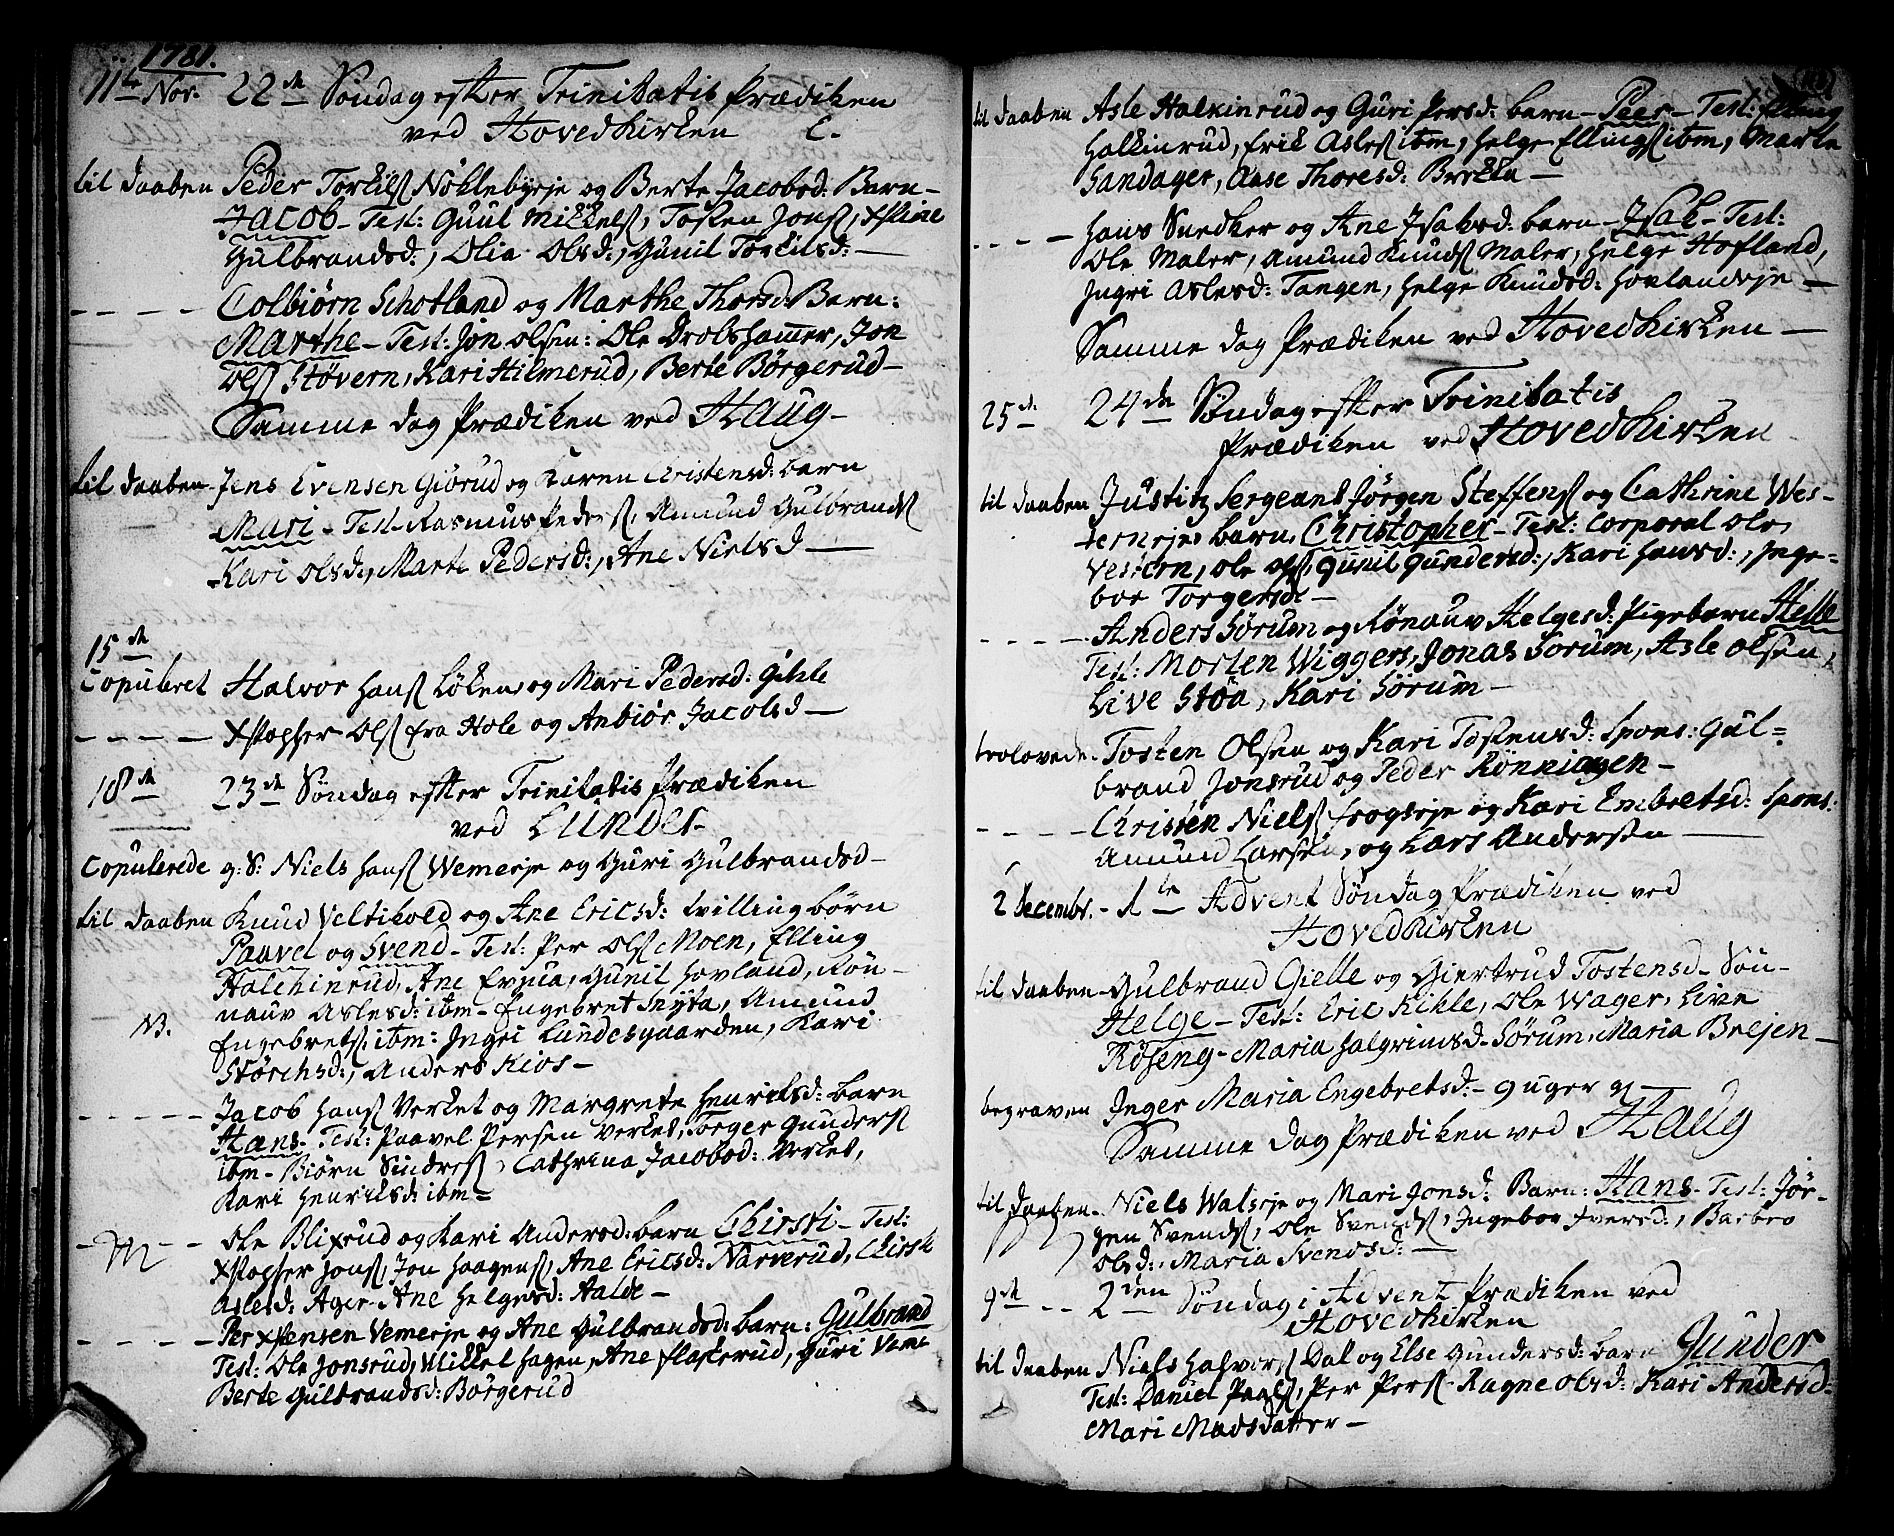 1781.
11te Nov. 22de Söndag efter Trinitatis Prædiken
ved Hovedkirken C.
til daaben Peder Torkilsß Nöklebyeje og Berte Jacobsd: Barn-
Jacob - Test: Guul Mikkelsß, Tosten Jonsß, Xstine
Gulbrandsd:, Olia Olsd:, Gunil Torkilsd: —
- - - - Colbiörn Schotland og Marthe Thorsd: Barn:
Marthe - Test: Jon olsen: Ole Drolshammer, Jon
Olsß Stövern, Kari Hilmerud, Berte Börgerud -
Samme dag Prædiken ved Haug -
til daaben Jens Evensen Giörud og Karen Christensd: barn
Mari - Test - Rasmus Pedersß, Amund Gulbrandsß
Kari Olsd:, Marte Pedersd:, Ane Nielsd —
15de
Copuleret Halvor Hansß Löken og Mari Pedersd: Gihle
- - - - Xstopher Olsß fra Hole og Anbiör Jacobsd —
18de 23de Söndag efter Trinitatis Prædiken
ved Lunder -
Copulerede g: S: Niels Hansß Wemereje og Guri Gulbrandsd -
til daaben Knud Veltikold og Ane Ericsd: tvilling börn
Paavel og Svend - Test: Per Olsß Moen, Elling
Halchinrud, Ane, Gunil Hovland, Rön-
nauv Aslesd: ibm - Engebret Snÿta, Amund
NB. Engebretsß ibm: Ingri Lundesgaarden, Kari
Störchsd:, Anders Kios -
- - - - Jacob Hansß Verket og Margrete Henriksd: barn
Hans - Test: Paavel Persen Verket, Torger Gundersß
ibm - Biörn Sindresß, Cathrina Jacobsd: Verket,
Kari Henriksd: ibm -
- - - Ole Blixrud og Kari Andersd: barn Chirsti - Test:
Xstopher Jonsß, Jon Haagensß, Ane Ericsd: Narverud, Chirsti
Aslesd: Ager - Ane Helgesd: Aalde -
- - - - Per Xstensen Vemereje og Ane Gulbrandsd: barn: Gulbrand
Test: Ole Jonsrud, Mikkel Hagen, Ane Flaskerud, Guri Veme
Berte Gulbrandsd: Börgerud
til daaben Asle Halkinrud og Guri Persd: barn - Peer - Test: Elling
Halkinrud, Erik Aslesß ibm, Helge Ellingsß ibm, Marte
Sandager, Aase Thoresd: Brekke -
- - - - Hans Snedker og Ane Isaksd: barn - Isak - Test:
Ole Maler, Amund Knudsß Maler, Helge Hofland,
Ingri Aslesd: Tangen, Helge Knudsd: Hovlandseje -
Samme dag Prædiken ved Hovedkirken —
25de 24de Söndag efter Trinitatis
Prædiken ved Hovedkirken
til daaben Justitz Sergeant Jörgen Steffensß og Cathrine Wes-
terneje barn, Christopher - Test: Corporal Ole
Vestern, Ole Olsß, Gunil Gundersd:, Kari Hansd:, Inge-
bor Torgersd -
- - - - Anders Sörum og Rönauv Helgesd: Pigebarn Helle
Test: Morten Wiggers, Jonas Sorum, Asle Olsen,
Live Stöa, Kari Sörum -
trolovede - Tosten Olsen og Kari Tostensd: Spons: Gul=
brand Jonsrud og Peder Rönningen -
- - - - Christen Nielsß Frogseje og Kari Embretsd: Spons:
Amund Larsen, og Lars Andersen —
2 Decembr. - 1te Advent Söndag Prædiken ved
Hovedkirken
til daaben - Gulbrand Gielle og Giertrud Tostensd - Sön -
Helge - Test: Eric Kihle, Ole Wager, Live
Röseng - Maria Halgrimsd - Sörum, Maria Brejen -
begraven Inger Maria Engebretsd - 9 uger g
Samme Dag Prædiken ved Haug
til daaben - Niels Walseje og Mari Jonsd: Barn: Hans - Test: Jör-
gen Svendsß, Ole Svendsß, Ingebor Iversd:, Barbro
Olsd:, Maria Svendsd: —
9de - - 2den Söndag i Advent Prædiken ved
Hovedkirken
til daaben Niels Halvorsß Dal og Else Gundersd: barn Gunder
Test: Daniel Paalsß, Per Persß Ragne Olsd: Kari Andersd:
Mari Madsdatter -